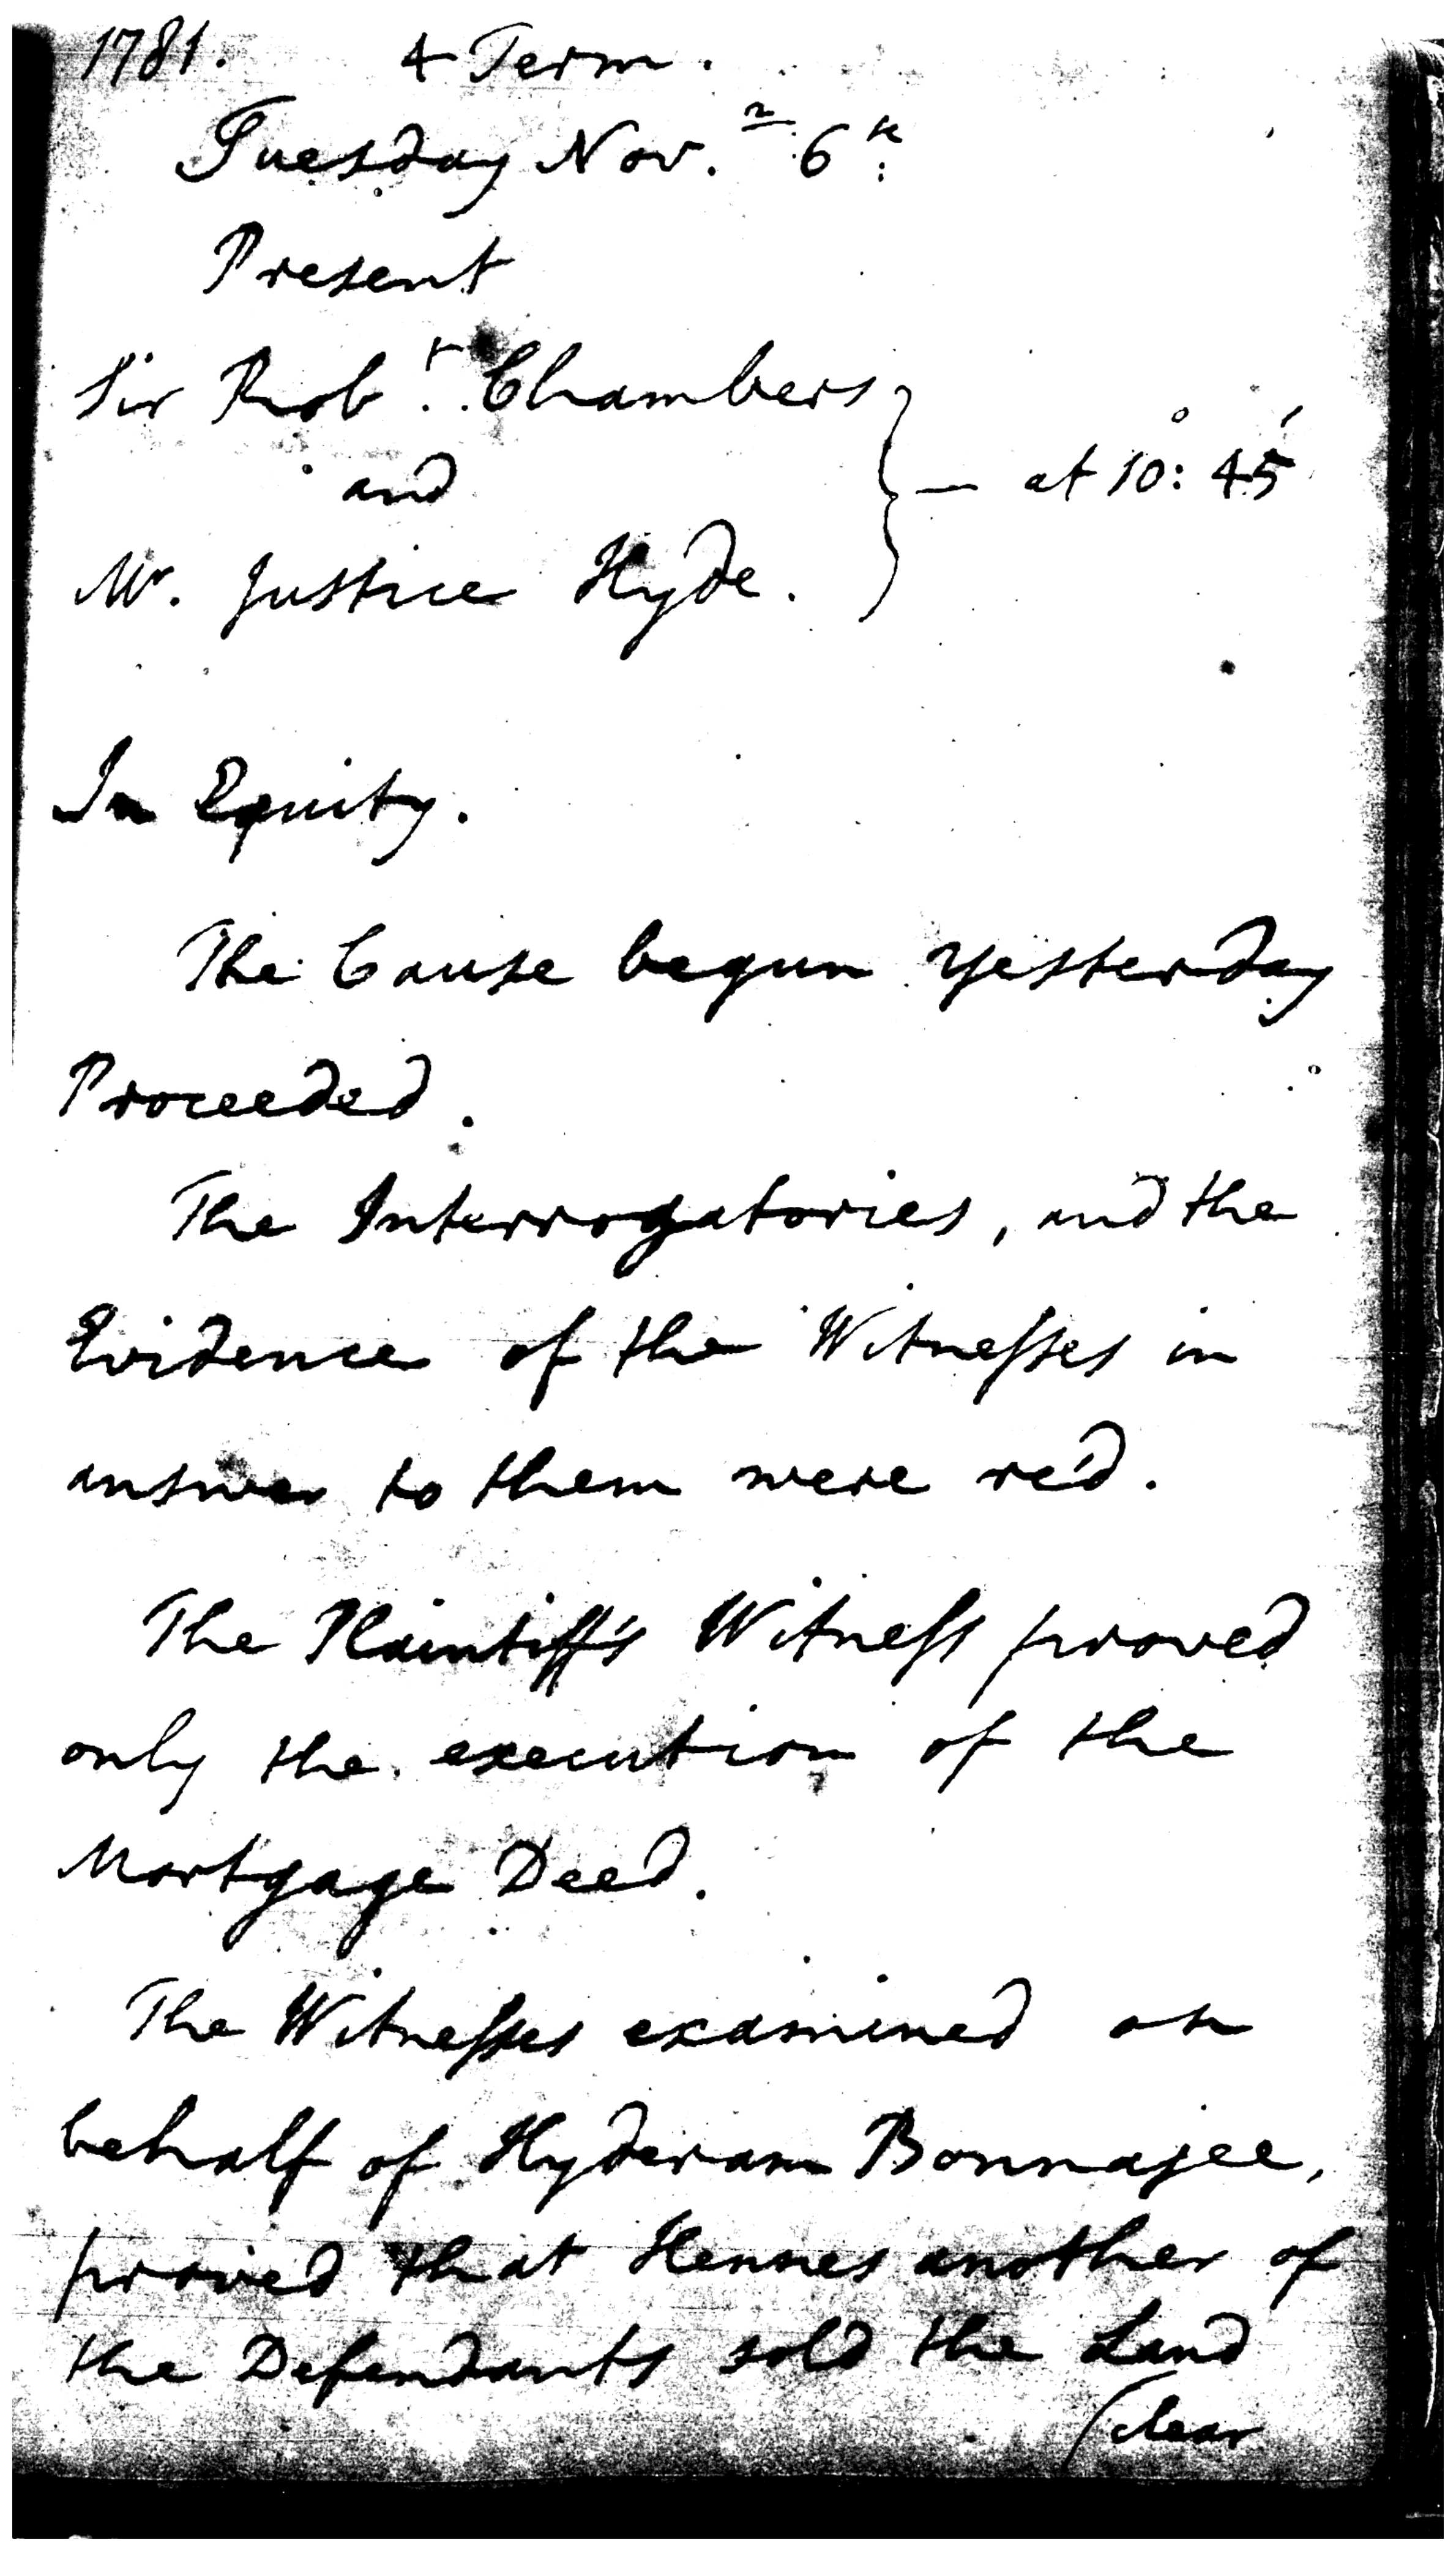 1781. 4 Term.
Tuesday Nov.r 6th
Present
Sir Robt. Chambers
and
— at 10°: 45'
Mr. Justice Hyde.
In Equity.
The Cause begun Yesterday
Proceeded.
The Interrogatories, and the
Evidence of the Witneſses in
answer to them were re'd.
The Plaintiff's Witneſs proved
only the execution of the
Mortgage Deed.
The Witneſses examined on
behalf of Hyderam Bonnajee,
proved that Hennes another of
the Defendants sold the Land
(clear